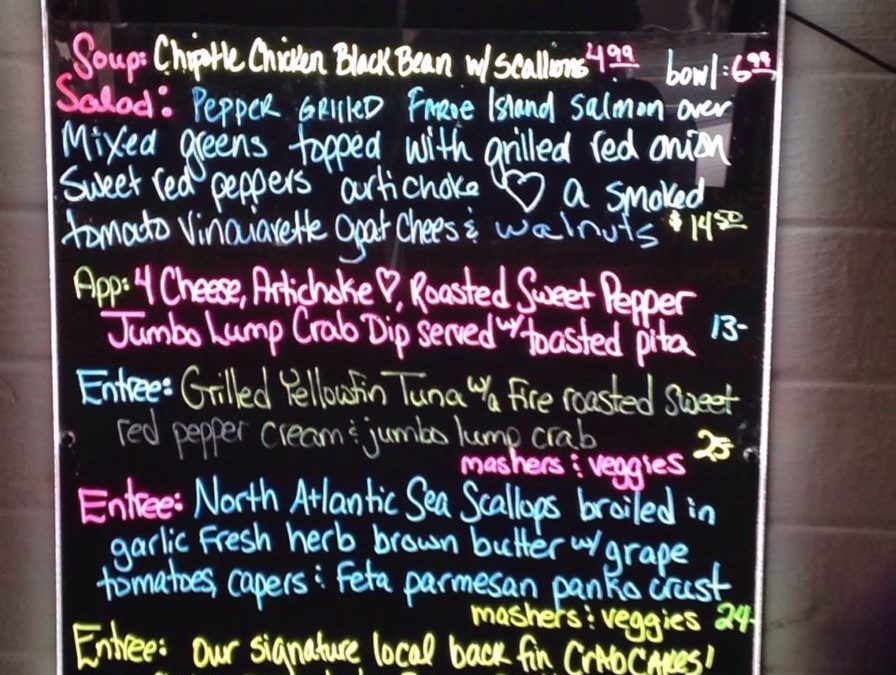 Soup: Chipotle Chicken Black Bean w/ scallions 4.99 bowl: 6.99
Salad: Pepper Grilled Faroe Island Salmon over
Mixed greens topped with grilled red onion
Sweet red peppers artichoke ♡ a smoked
tomato Vinaiarette goat Chees & walnuts $14.50
App: 4 Cheese, Artichoke ♡, Roasted Sweet Pepper
Jumbo Lump Crab Dip served w/ toasted pita 13-
Entree: Grilled Yellowfin Tuna w/a fire roasted Sweet
red pepper cream & jumbo lump crab 25-
mashers & veggies
Entree: North Atlantic Sea Scallops broiled in
garlic Fresh herb brown butter w/ grape
tomatoes, capers & Feta parmesan panko crust
mashers & veggies 24-
Entree: our signature local back fin Crab Cakes!